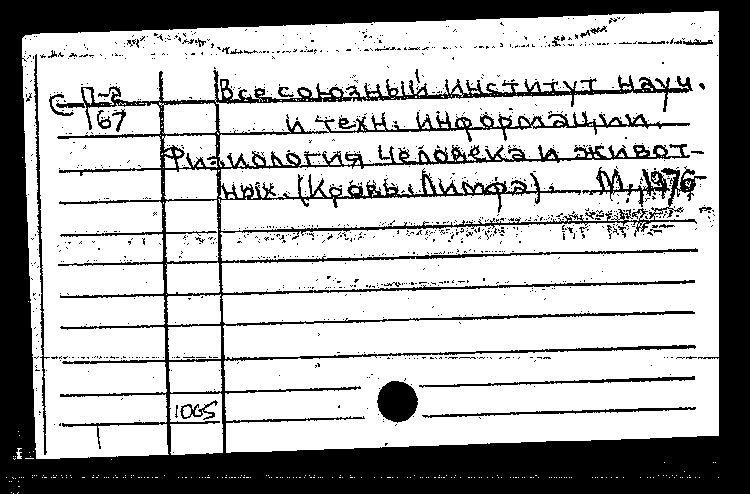 С П-2 Все союзный институт науч.
67 и техн. информации.
Физиология человека и живот-
ных. (Кровь. Лимфа). М., 1976
1065